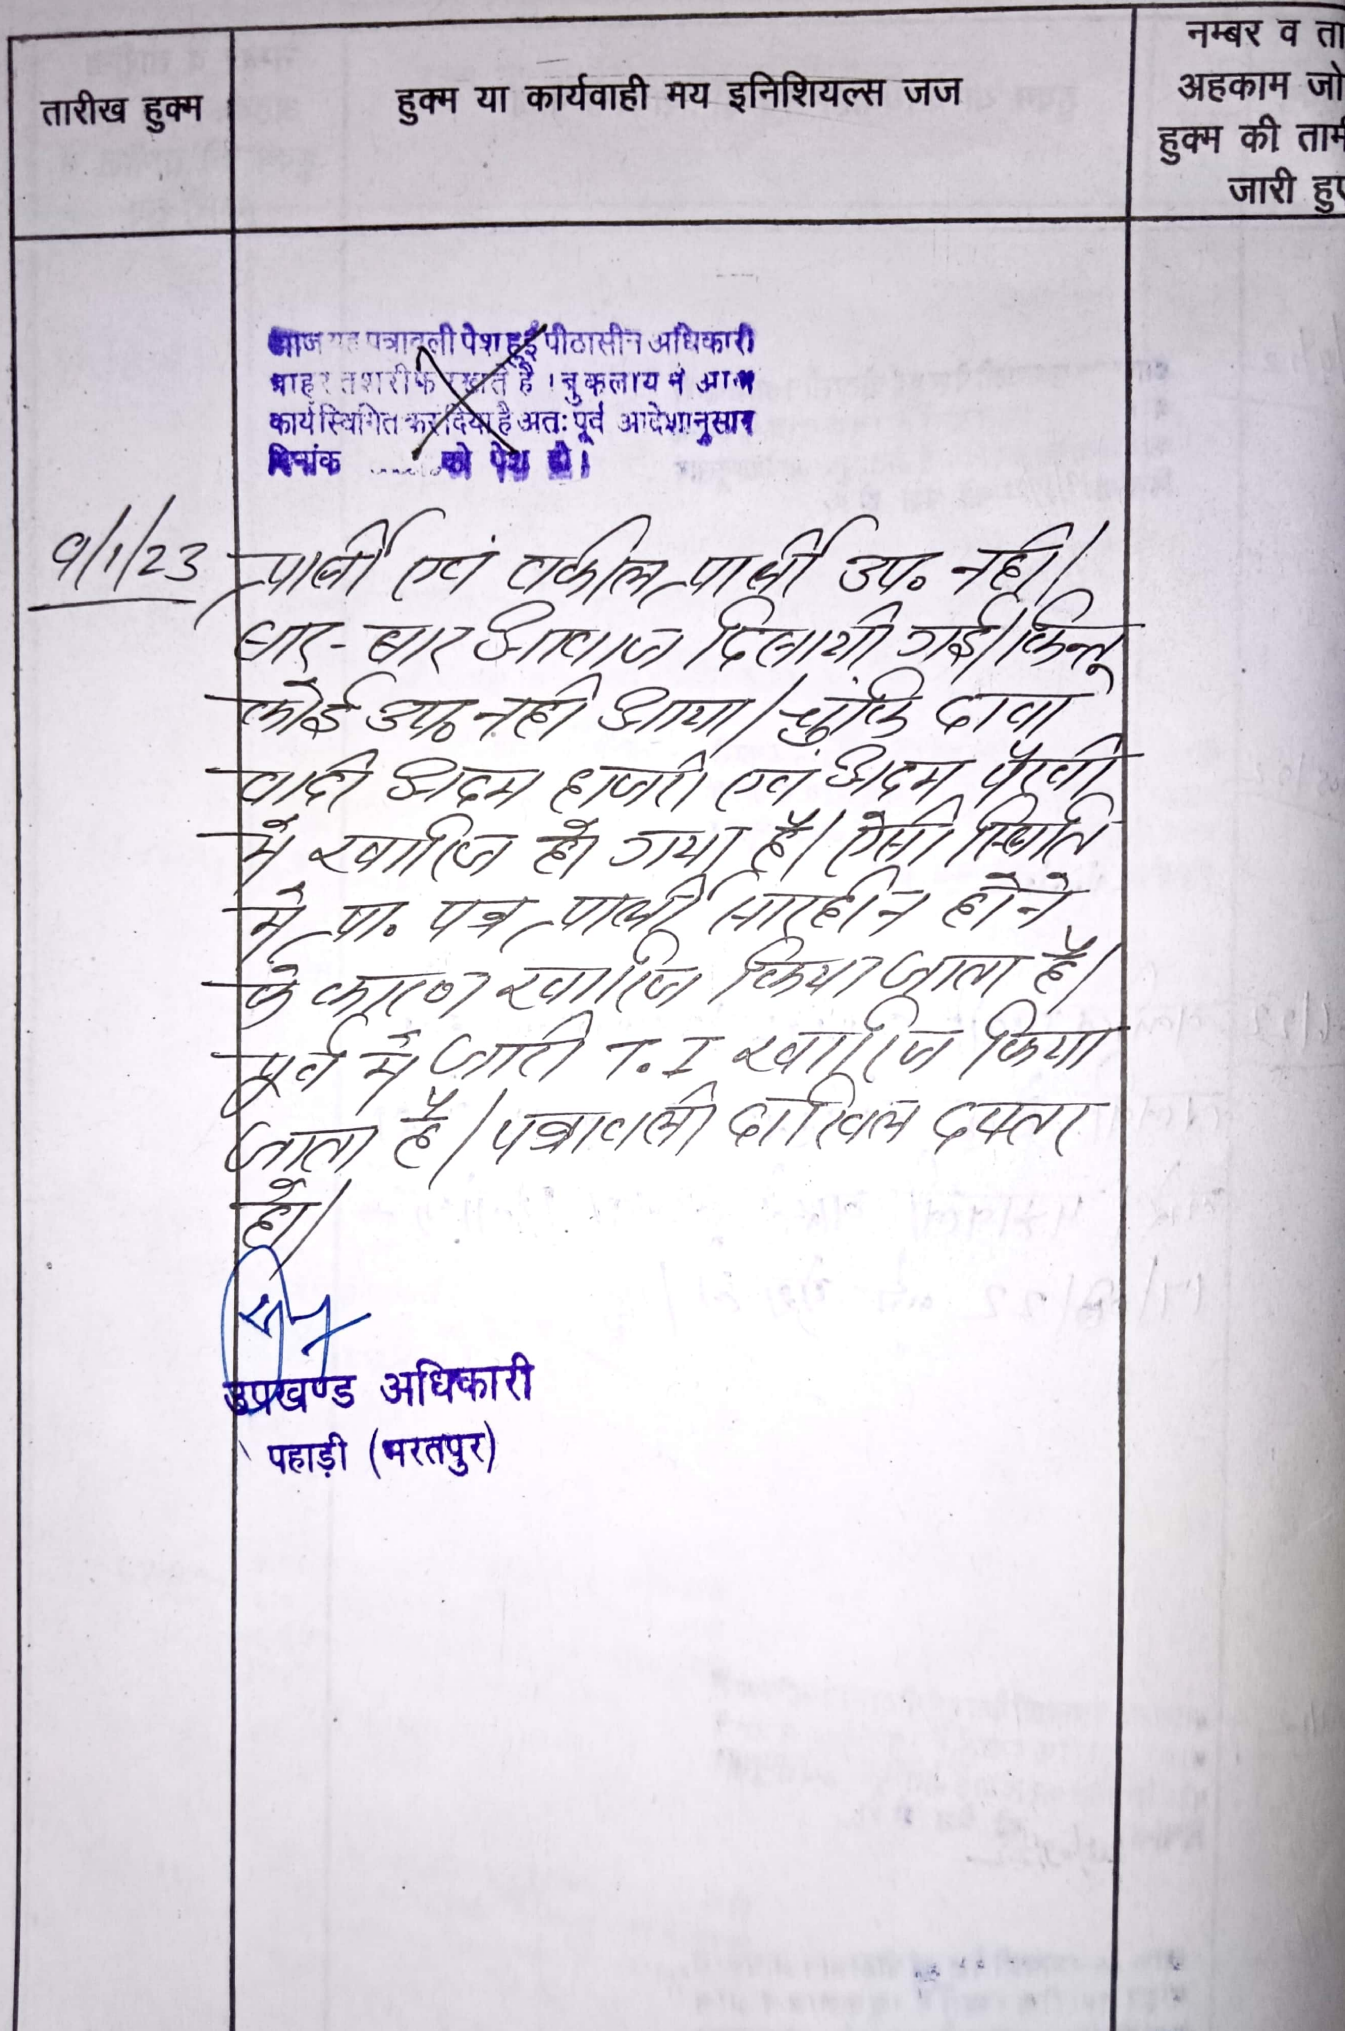 तारीख हुक्म
हुक्म या कार्यवाही मय इनिशियल्स जज
नम्बर व ता
अहकाम जो
हुक्म की ताम
जारी हुए
आज यह पत्रावली पेश हुई पीठासीन अधिकारी
बाहर तशरीफ रखते है ।
कार्य स्थगित कर दिया है अतः पूर्व आदेशानुसार
दिनांक ........ को पेश हो।
9/1/23
प्रार्थी एवं वकील प्रार्थी उप० नही।
बार-बार आवाज दिलायी गई। किन्तू
कोई उप० नही आया। चुंकि दावा
वादी अदम हाजरी एवं अदम पैरवी
में खारिज हो गया है। ऐसी स्थिति
में प्रा. पत्र प्रार्थी सारहीन होने
के कारण खारिज किया जाता है।
पूर्व में जारी T.I खारिज किया
जाता है। पत्रावली दाखिल दफ्तर
हो।
उपखण्ड अधिकारी
पहाड़ी (भरतपुर)